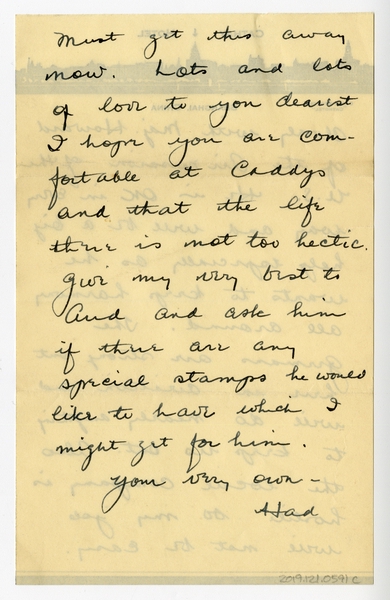 Must get this away
now. Lots and lots
of love to you dearest
I hope you are com-
fortable at Caddys
and that the life
there is not too hectic.
Give my very best to
Aud and ask him
if there are any
special stamps he would
like to have which I
might get for him.
Your very own -
Had
2019.121.0591c